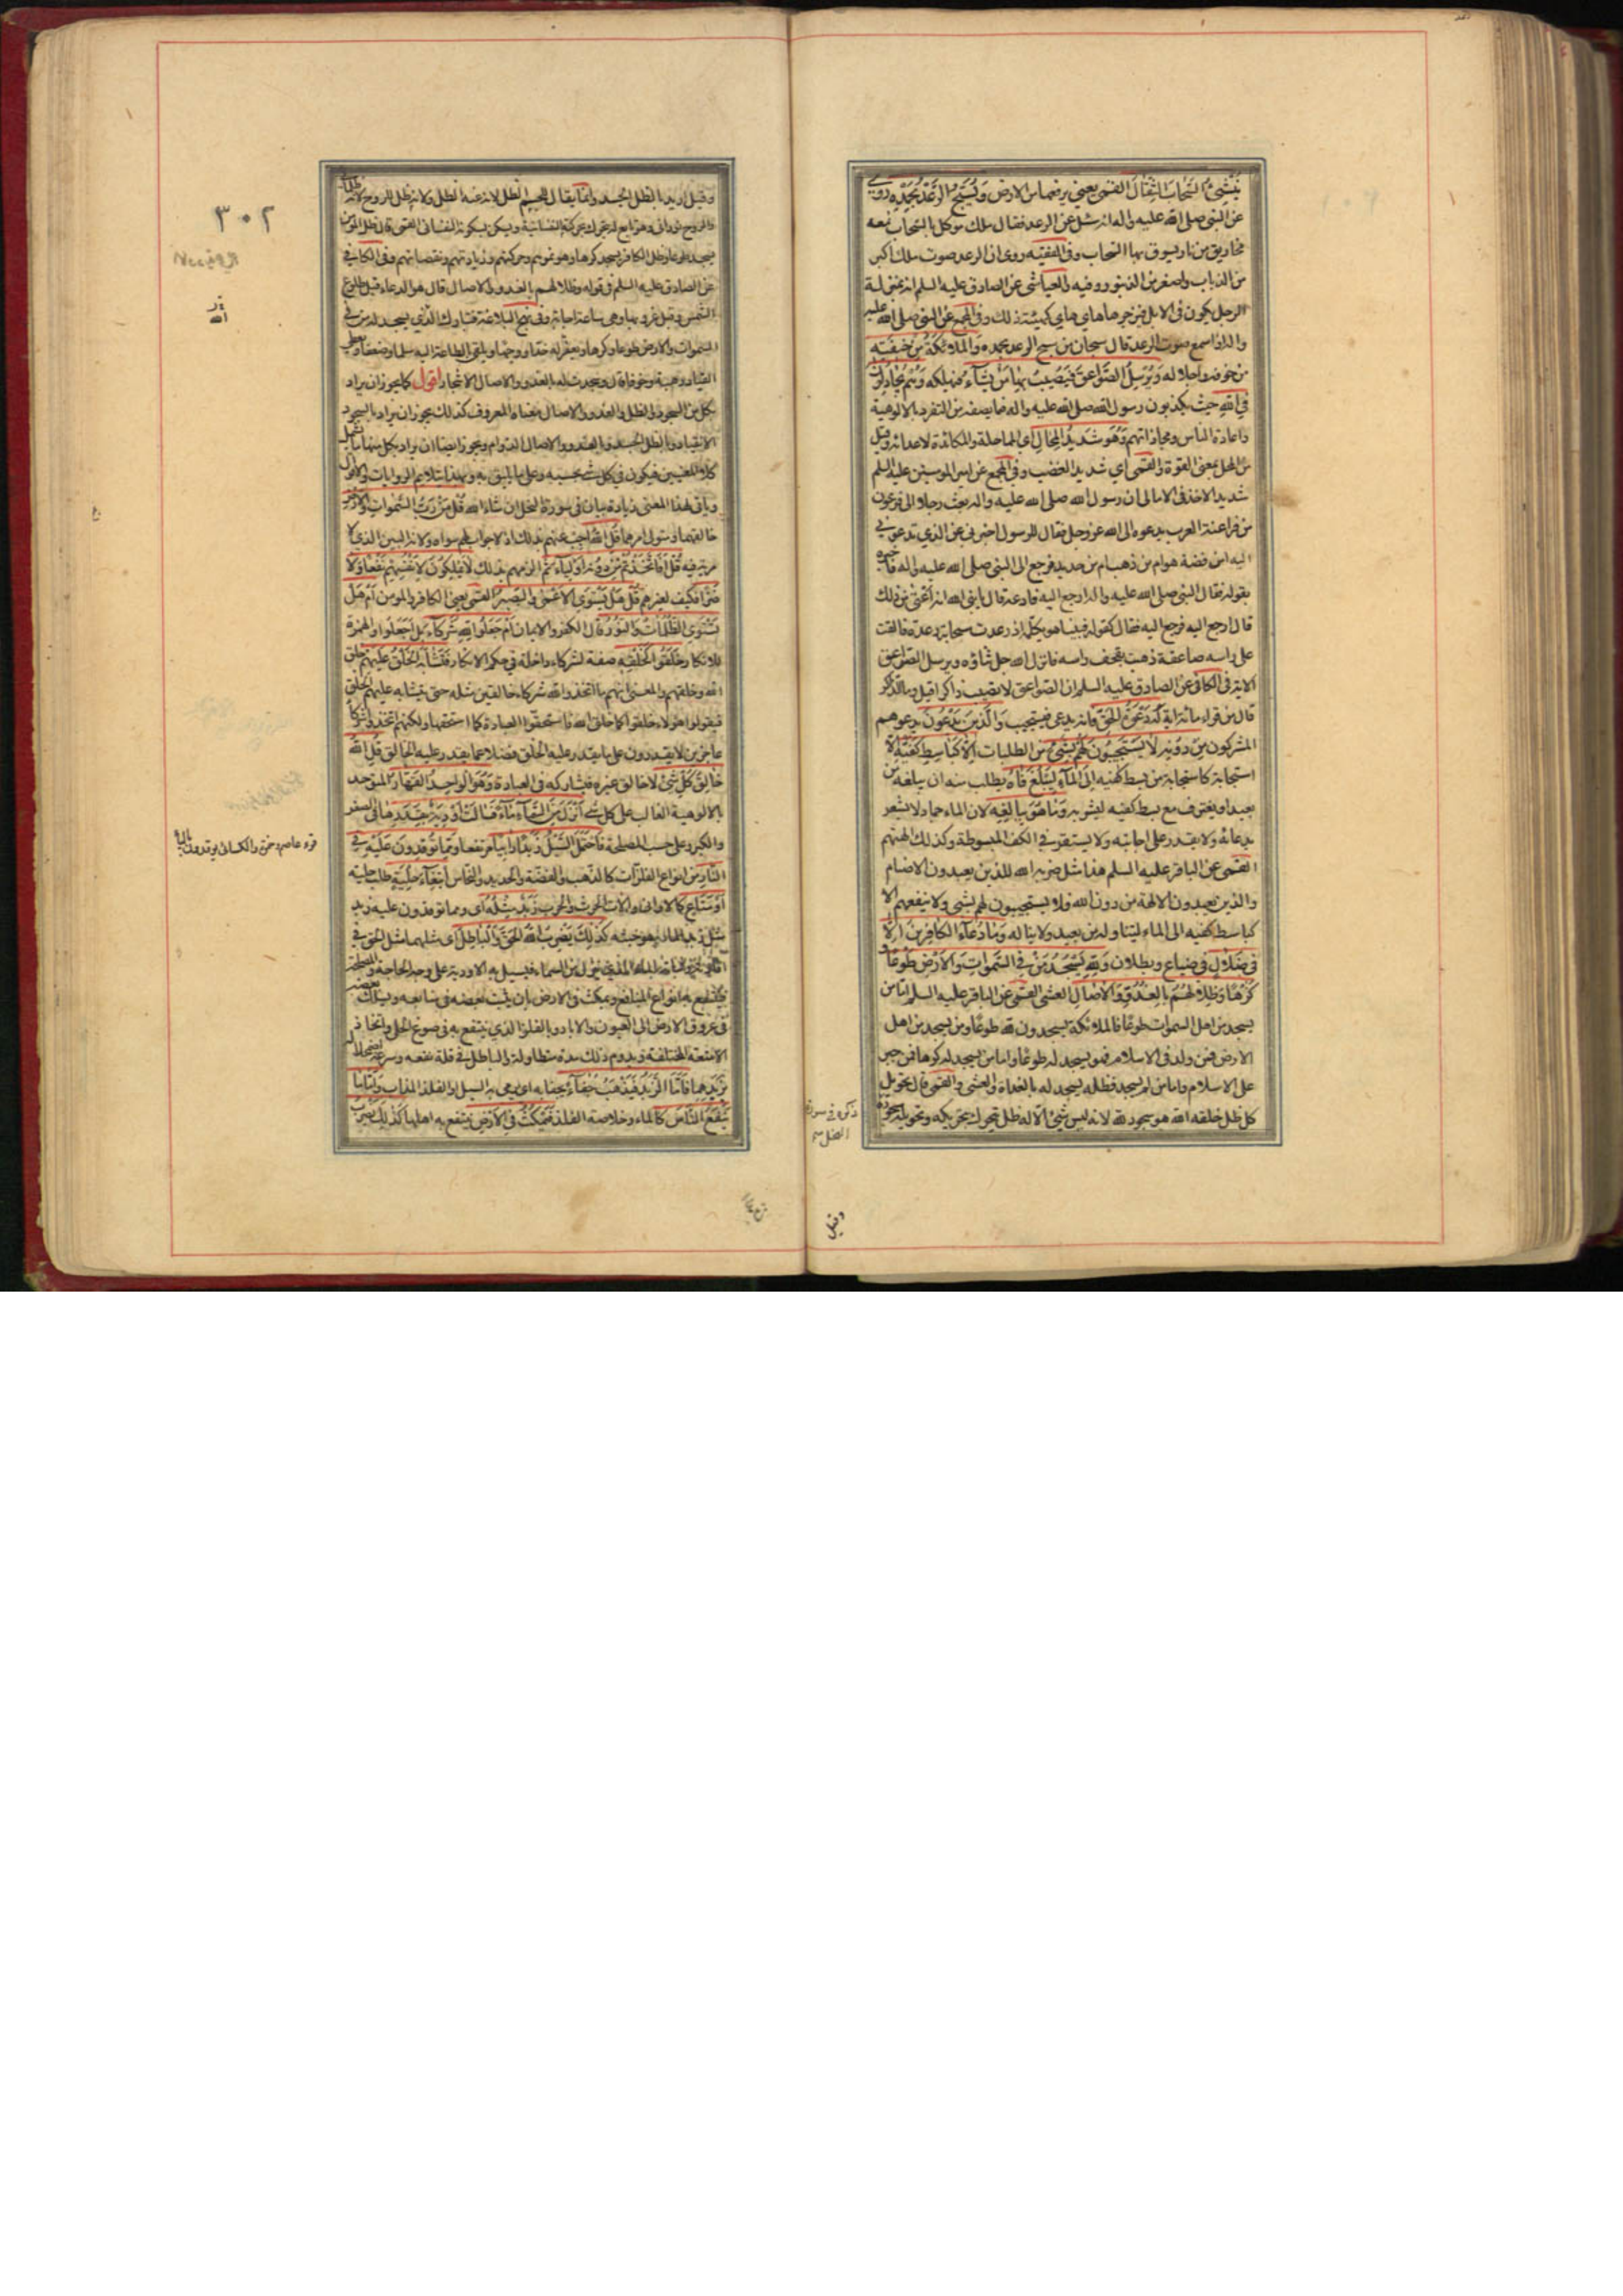 يُنْشِئُ السَّحَابَ الثِّقَالَ القمي يعني يرفعها من الارض وَيُسَبِّحُ الرَّعْدُ بِحَمْدِهِ روي
عن النبي صلى الله عليه واله انه سئل عن الرعد فقال ملك موكل بالسحاب معه
مخاريق من نار يسوق بها السحاب وفي الفقيه روى ان الرعد صوت ملك اكبر
من الذباب واصغر من الزنبور وفيه والعياشي عن الصادق عليه السلم انه بمنزلة
الرجل يكون في الابل فيزجرها هاي هاي كهيئة ذلك وفي المجمع عن النبي صلى الله عليه
واله اذا سمع صوت الرعد قال سبحان من يسبح الرعد بحمده وَالْمَلَائِكَةُ مِنْ خِيفَتِهِ
من خوفه واجلاله وَيُرْسِلُ الصَّوَاعِقَ فَيُصِيبُ بِهَا مَنْ يَشَاءُ فيهلكه وَهُمْ يُجَادِلُونَ
فِي اللهِ حيث يكذبون رسول الله صلى الله عليه واله فيما يصفه من التفرد بالالوهية
واعادة الناس ومجازاتهم وَهُوَ شَدِيدُ الْمِحَالِ اي المماحلة والمكائدة لاعدائه وقيل
من المحل بمعنى القوة والقمي اي شديد الغضب وفي المجمع عن امير المومنين عليه السلم
شديد الاخذ في الامالي ان رسول الله صلى الله عليه واله بعث رجلا الى فرعون
من فراعنة العرب يدعوه الى الله عز وجل فقال للرسول اخبرني عن الذي تدعوني
اليه امن فضة هو ام من ذهب ام من حديد فرجع الى النبي صلى الله عليه واله فاخبره
بقوله فقال النبي صلى الله عليه واله ارجع اليه فادعه قال يا نبي الله انه اعتى من ذلك
قال ارجع اليه فرجع اليه فقال كقوله فبينا هو يكلمه اذ رعدت سحابة رعدة فالقت
على راسه صاعقة ذهبت بقحف راسه فانزل الله جل ثناؤه ويرسل الصواعق
الاية في الكافي عن الصادق عليه السلم ان الصواعق لا تصيب ذاكرا قيل وما الذاكر
قال من قراء مائة اية لَهُ دَعْوَةُ الْحَقِّ فانه يدعى فيستجيب وَالَّذِينَ يَدْعُونَ يدعوهم
المشركون مِنْ دُونِهِ لَا يَسْتَجِيبُونَ لَهُمْ بِشَيْءٍ من الطلبات اِلَّا كَبَاسِطِ كَفَّيْهِ الا
استجابة كاستجابة من بسط كفيه اِلَى الْمَاءِ لِيَبْلُغَ فَاهُ يطلب منه ان يبلغه من
بعيد او يغترف مع بسط كفيه ليشربه وَمَا هُوَ بِبَالِغِهِ لان الماء جماد لا يشعر
بدعائه ولا يقدر على اجابته ولا يستقر في الكف المبسوطة وكذلك الهتهم
القمي عن الباقر عليه السلم هذا مثل ضربه الله للذين يعبدون الاصنام
والذين يعبدون الالهة من دون الله فلا يستجيبون لهم بشيء ولا ينفعهم الا
كباسط كفيه الى الماء ليتناوله من بعيد ولا يناله وَمَا دُعَاءُ الْكَافِرِينَ اِلَّا
فِي ضَلَالٍ في ضياع وبطلان وَلِلّهِ يَسْجُدُ مَنْ فِي السَّمَوَاتِ وَالْاَرْضِ طَوْعًا وَ
كَرْهًا وَظِلَالُهُمْ بِالْغُدُوِّ وَالْآصَالِ العشي القمي عن الباقر عليه السلم اما من
يسجد من اهل السموات طوعا فالملائكة يسجدون لله طوعا ومن يسجد من اهل
الارض فمن ولد في الاسلام فهو يسجد له طوعا واما من يسجد له كرها فمن جبر
على الاسلام واما من لم يسجد فظله يسجد له بالغداة والعشي والقمي قال تحويل
كل ظل خلقه الله هو سجود لله لانه ليس شيء الا له ظل يتحرك بتحريكه وتحويله سجوده
ذكره في سورة
النحل منه
وقيل
٣٠٢
وقيل اريد بالظل الجسد وانما يقال للجسم الظل لانه عنه الظل ولانه ظل للروح لانه ظلماني
والروح نوراني وهو تابع له يتحرك بحركته النفسانية ويسكن بسكونه النفساني القمي قال ظل المومن
يسجد طوعا وظل الكافر يسجد كرها وهو نموهم وحركتهم وزيادتهم ونقصانهم وفي الكافي
عن الصادق عليه السلم في قوله وظلالهم بالغدو والاصال قال هو الدعاء قبل طلوع
الشمس وقبل غروبها وهي ساعة اجابة وفي نهج البلاغة فتبارك الذي يسجد له من في
السموات والارض طوعا وكرها ويعفر له خدا ووجها ويلقي بالطاعة اليه سلما وضعفا ويعطي
القياد رهبة وخوفا وقال وسجدت له بالغدو والاصال الاشجار اقول كما يجوز ان يراد
بكل من السجود والظل والغدو والاصال معناه المعروف كذلك يجوز ان يراد بالسجود
الانقياد وبالظل الجسد وبالغدو والاصال الدوام ويجوز ايضا ان يراد بكل منها ما يشمل
كلا المعنيين فيكون في كل شيء بحسبه وعلى ما يليق به وبهذا تتلائم الروايات والاقوال
وياتي لهذا المعنى زيادة بيان في سورة النحل ان شاء الله قُلْ مَنْ رَبُّ السَّمَوَاتِ وَالْاَرْضِ
خالقهما ومتولي امرهما قُلِ اللهُ اجب عنهم بذلك اذ لا جواب لهم سواه ولانه البين الذي لا
مرية فيه قُلْ اَفَاتَّخَذْتُمْ مِنْ دُونِهِ اَوْلِيَاءَ ثم الزمهم بذلك لَا يَمْلِكُونَ لِاَنْفُسِهِمْ نَفْعًا وَلَا
ضَرًّا فكيف لغيرهم قُلْ هَلْ يَسْتَوِي الْاَعْمَى وَالْبَصِيرُ القمي يعني الكافر والمومن اَمْ هَلْ
تَسْتَوِي الظُّلُمَاتُ وَالنُّورُ قال الكفر والايمان اَمْ جَعَلُوا لِلّهِ شُرَكَاءَ بل اجعلوا والهمزة
للانكار خَلَقُوا كَخَلْقِهِ صفة لشركاء داخلة في حكم الانكار فَتَشَابَهَ الْخَلْقُ عَلَيْهِمْ خلق
الله وخلقهم والمعنى انهم ما اتخذوا لله شركاء خالقين مثله حتى يتشابه عليهم الخلق
فيقولوا هؤلاء خلقوا كما خلق الله فاستحقوا العبادة كما استحقها ولكنهم اتخذوا شركاء
عاجزين لا يقدرون على ما يقدر عليه الخلق فضلا عما يقدر عليه الخالق قُلِ اللهُ
خَالِقُ كُلِّ شَيْءٍ لا خالق غيره فيشاركه في العبادة وَهُوَ الْوَاحِدُ الْقَهَّارُ المتوحد
بالالوهية الغالب على كل شيء اَنْزَلَ مِنَ السَّمَاءِ مَاءً فَسَالَتْ اَوْدِيَةٌ بِقَدَرِهَا في الصغر
والكبر وعلى حسب المصلحة فَاحْتَمَلَ السَّيْلُ زَبَدًا رَابِيًا مرتفعا وَمِمَّا تُوقِدُونَ عَلَيْهِ فِي
النَّارِ من انواع الفلزات كالذهب والفضة والحديد والنحاس ابْتِغَاءَ حِلْيَةٍ طلب حلية
اَوْ مَتَاعٍ كالاواني والات الحرث والحرب زَبَدٌ مِثْلُهُ اي ومما توقدون عليه زبد
مثل زبد الماء هو خبثه كَذَلِكَ يَضْرِبُ اللهُ الْحَقَّ وَالْبَاطِلَ اي مثلهما مثل الحق في
افادته وثباته بالماء الذي ينزل من السماء فيسيل به الاودية على وجه الحاجة والمصلحة
فينتفع به انواع المنافع ويمكث في الارض بان يثبت بعضه في منابعه ويسلك بعضه
في عروق الارض الى العيون والابار وبالفلز الذي ينتفع به في صوغ الحلي واتخاذ
الامتعة المختلفة ويدوم ذلك مدة متطاولة والباطل في قلة نفعه وسرعة اضمحلاله
بزبدهما فَاَمَّا الزَّبَدُ فَيَذْهَبُ جُفَاءً يجفا به اي يرمى به السيل والفلز المذاب وَاَمَّا مَا
يَنْفَعُ النَّاسَ كالماء وخلاصة الفلز فَيَمْكُثُ فِي الْاَرْضِ ينتفع به اهلها كَذَلِكَ يَضْرِبُ
قرء عاصم وحمزة والكسائي يوقدون بالياء